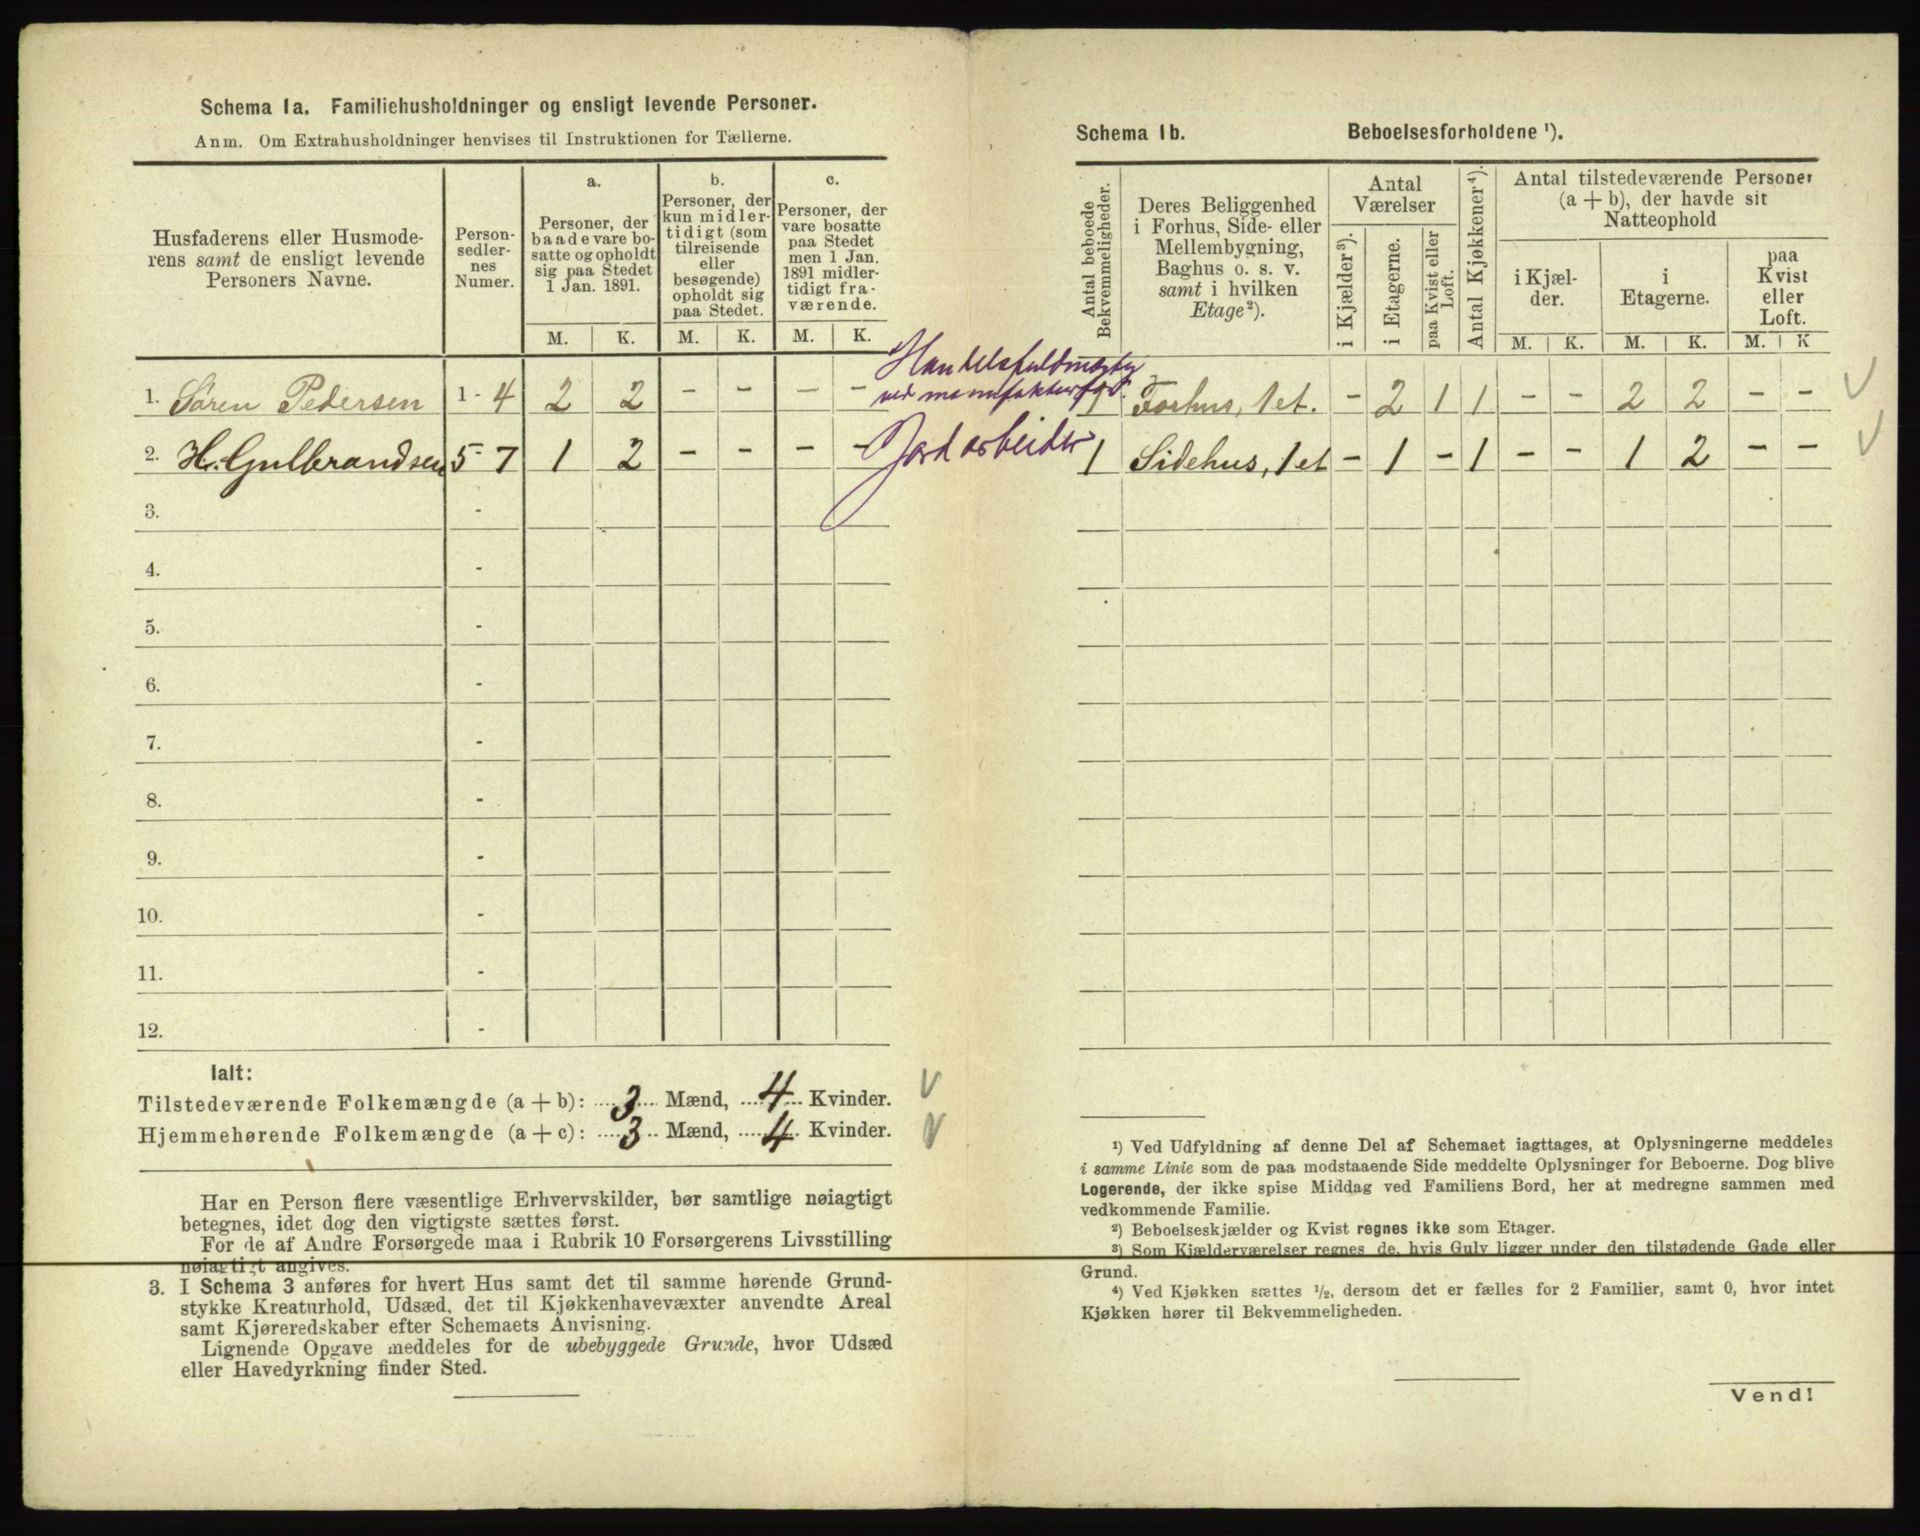 Schema 1a. Familiehusholdninger og ensligt levende Personer.
Anm. Om Extrahusholdninger henvises til Instruktionen for Tællerne.
Husfaderens eller Husmode-
rens samt de ensligt levende
Personers Navne.
Person-
sedler-
nes
Numer.
a.
Personer, der
baade vare bo-
satte og opholdt
sig paa Stedet
1 Jan. 1891.
b.
Personer, der
kun midler-
tidigt (som
tilreisende
eller
besøgende)
opholdt sig
paa Stedet.
c.
Personer, der
vare bosatte
paa Stedet
men 1 Jan.
1891 midler-
tidigt fra-
værende.
M. K. M. K. M. K.
1. Søren Pedersen 1 - 4 2 2 - - - -
2. H. Gulbrandsen 5 - 7 1 2 - - - -
3. -
4. -
5. -
6. -
7. -
8. -
9. -
10. -
11. -
12. -
Ialt:
Tilstedeværende Folkemængde (a + b): 3 Mænd, 4 Kvinder.
Hjemmehørende Folkemængde (a + c): 3 Mænd, 4 Kvinder.
Har en Person flere væsentlige Erhvervskilder, bør samtlige nøiagtigt
betegnes, idet dog den vigtigste sættes først.
For de af Andre Forsørgede maa i Rubrik 10 Forsørgerens Livsstilling
nøiagtigt angives.
3. I Schema 3 anføres for hvert Hus samt det til samme hørende Grund-
stykke Kreaturhold, Udsæd, det til Kjøkkenhavevæxter anvendte Areal
samt Kjøreredskaber efter Schemaets Anvisning.
Lignende Opgave meddeles for de ubebyggede Grunde, hvor Udsæd
eller Havedyrkning finder Sted.
Handelsfuldmægtig
ved manufakturforr.
Jordarbeider
Schema 1b. Beboelsesforholdene ¹).
Antal beboede
Bekvemmeligheder.
Deres Beliggenhed
i Forhus, Side- eller
Mellembygning,
Baghus o. s. v.
samt i hvilken
Etage²).
Antal
Værelser
i Kjælder³).
i Etagerne.
paa Kvist eller
Loft.
Antal Kjøkkener⁴).
Antal tilstedeværende Personer
(a + b), der havde sit
Natteophold
i Kjæl-
der.
i
Etagerne.
paa
Kvist
eller
Loft.
M. K. M. K. M. K
1 Forhus, 1 et. - 2 1 1 - - 2 2 - -
1 Sidehus, 1 et - 1 - 1 - - 1 2 - -
¹) Ved Udfyldning af denne Del af Schemaet iagttages, at Oplysningerne meddeles
i samme Linie som de paa modstaaende Side meddelte Oplysninger for Beboerne. Dog blive
Logerende, der ikke spise Middag ved Familiens Bord, her at medregne sammen med
vedkommende Familie.
²) Beboelseskjælder og Kvist regnes ikke som Etager.
³) Som Kjælderværelser regnes de, hvis Gulv ligger under den tilstødende Gade eller
Grund.
⁴) Ved Kjøkken sættes ½, dersom det er fælles for 2 Familier, samt 0, hvor intet
Kjøkken hører til Bekvemmeligheden.
Vend!